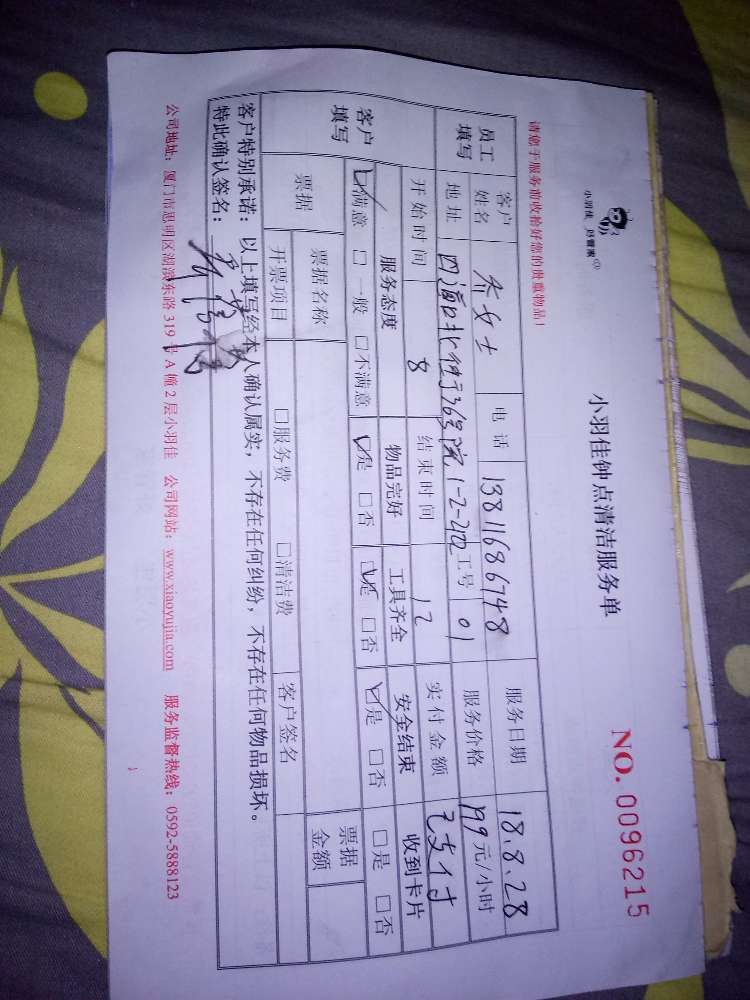 小羽佳 好管家
小羽佳钟点清洁服务单
NO. 0096215
请您于服务前收拾好您的贵重物品！
员工填写 客户姓名 乔女士 电话 13811686748 服务日期 18.8.28
地址 36号院1-2-402 工号 01 服务价格 199元/小时
客户填写 开始时间 8 结束时间 12 实付金额 已支付
服务态度 物品完好 工具齐全 安全结束 收到卡片
☑满意 □一般 □不满意 ☑是 □否 ☑是 □否 ☑是 □否 □是 □否
票据 票据名称 票据金额
开票项目 □服务费 □清洁费 客户签名
客户特别承诺：以上填写经本人确认属实，不存在任何纠纷，不存在任何物品损坏。
特此确认签名：
公司地址：厦门市思明区湖滨东路 319 号 A 幢 2 层小羽佳 公司网站：www.xiaoyujia.com 服务监督热线：0592-5888123